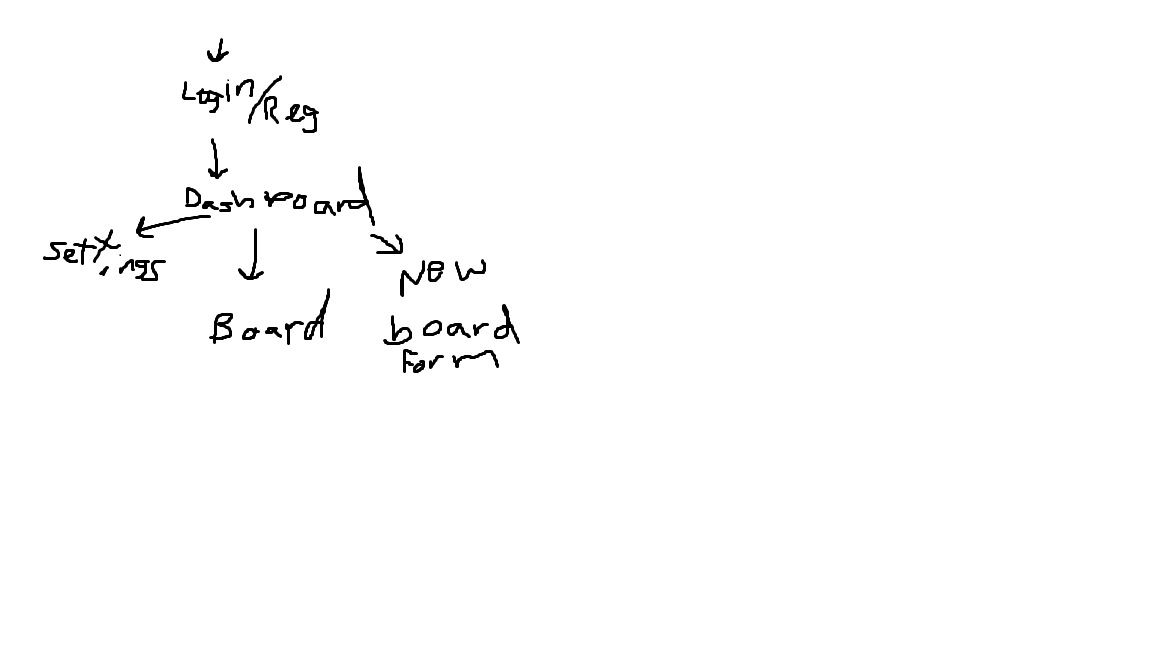 Login/Reg
Dashboard
Settings
Board
New
board
Form